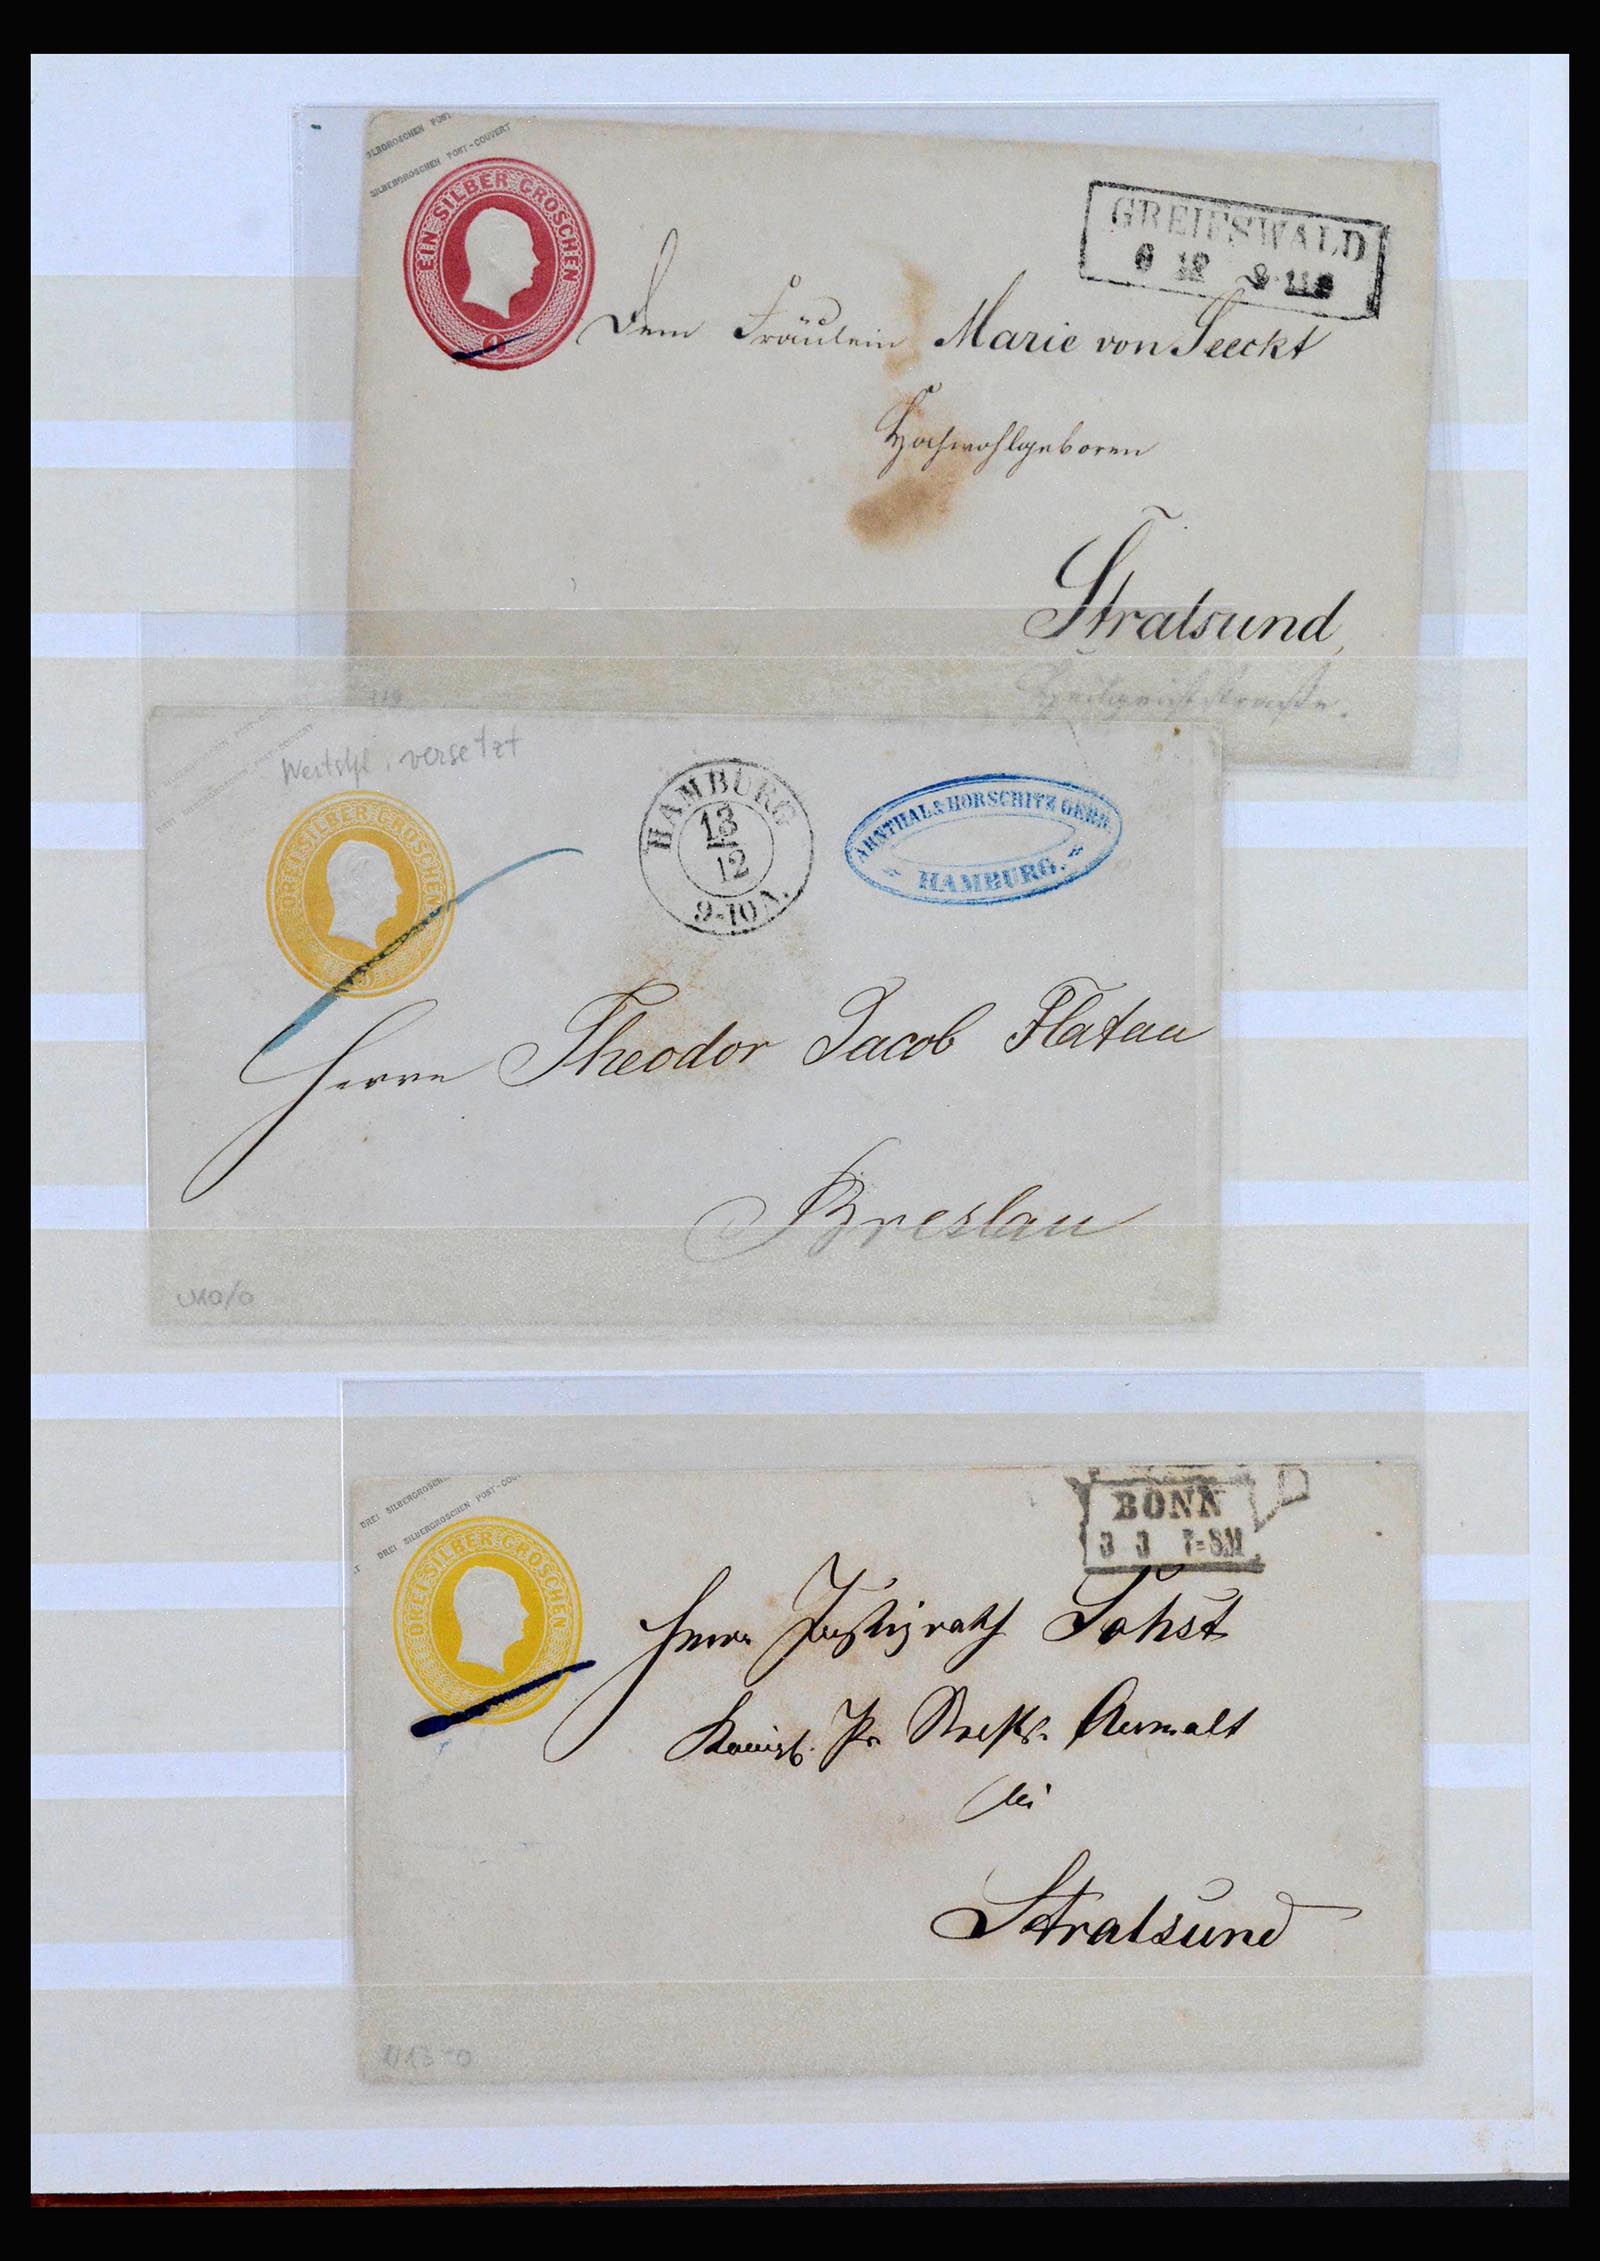 SILBERGROSCHEN POST-
SILBERGROSCHEN POST-COUVERT
EIN SILBER GROSCHEN
GREIFSWALD
6 12
Dem Fräulein Marie von Seeckt
Hochwohlgeboren
Stralsund,
Wertstpl. versetzt
DREI SILBERGROSCHEN POST-COUVERT
DREI SILBER GROSCHEN
3
HAMBURG
13
12
9-10 A.
ARNTHAL & HORSCHITZ GEBR.
HAMBURG.
Herrn Theodor Jacob Flatau
Breslau
U10/0
DREI SILBERGROSCHEN
DREI SILBERGROSCHEN POST-COU
DREI SILBER GROSCHEN
BONN
3 3 7-8M
Herrn Justizrath Sohst
Anwalt
Stralsund
U13